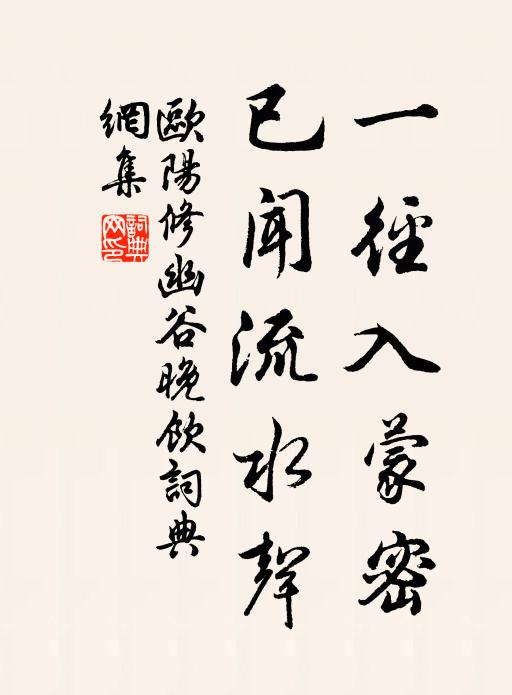 一徑入蒙密
已聞流水聲
歐陽修幽谷晚飲詞典
網集
詞典
网印